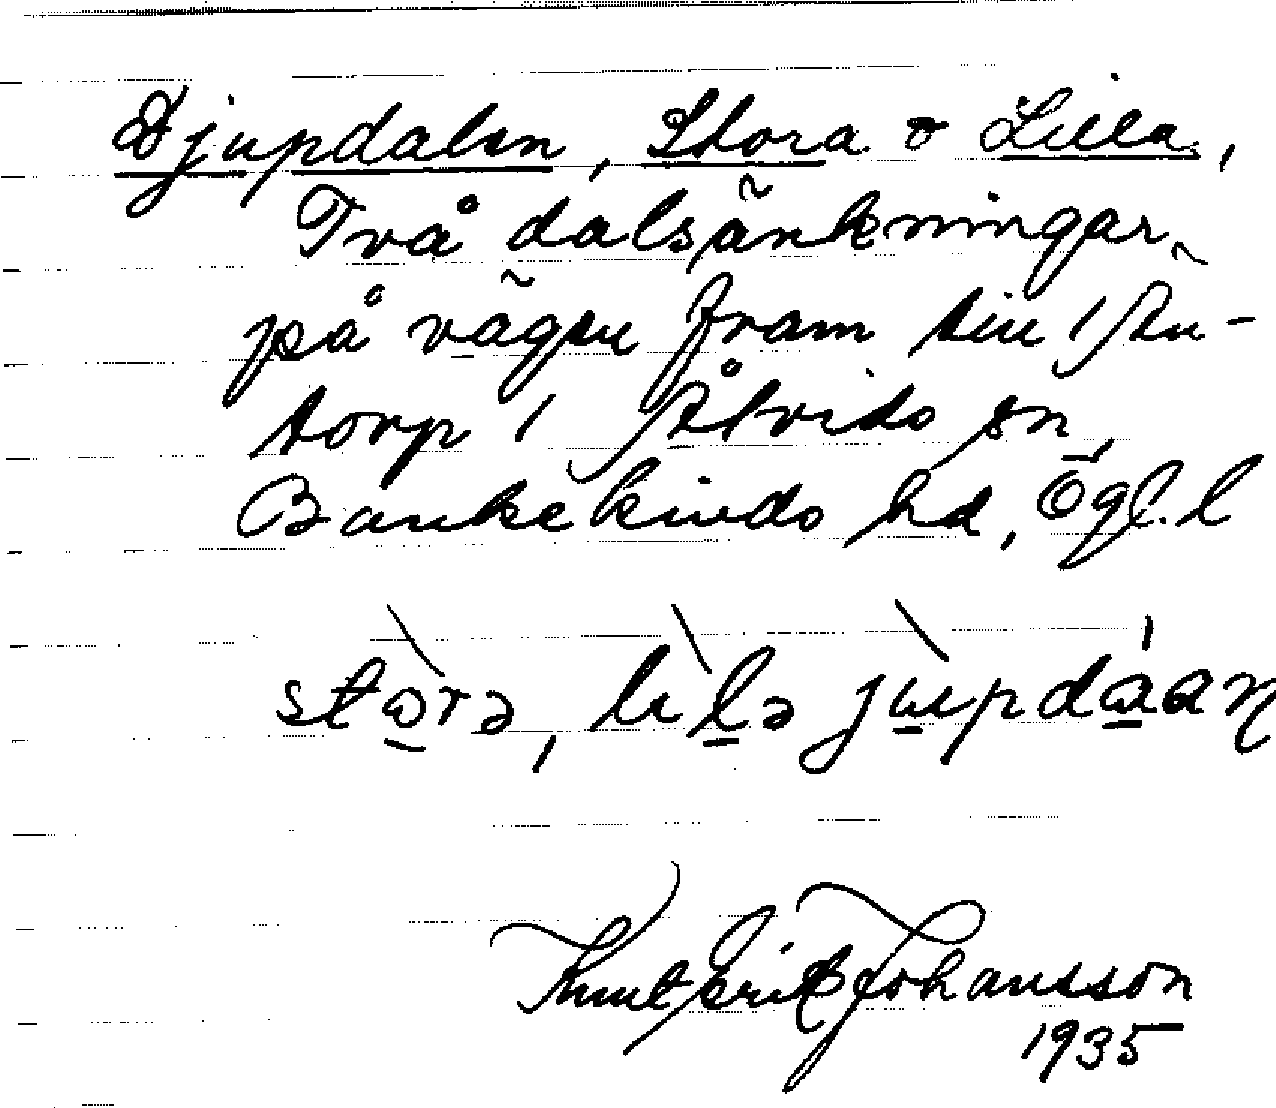 Djupdalen, Stora o Lilla,
Två dalsänkningar
på vägen fram till
torp i Åtvids sn,
Bankekinds hd, Ögl. l
stora, lila jupdaan
Knut Erik Johansson
1935